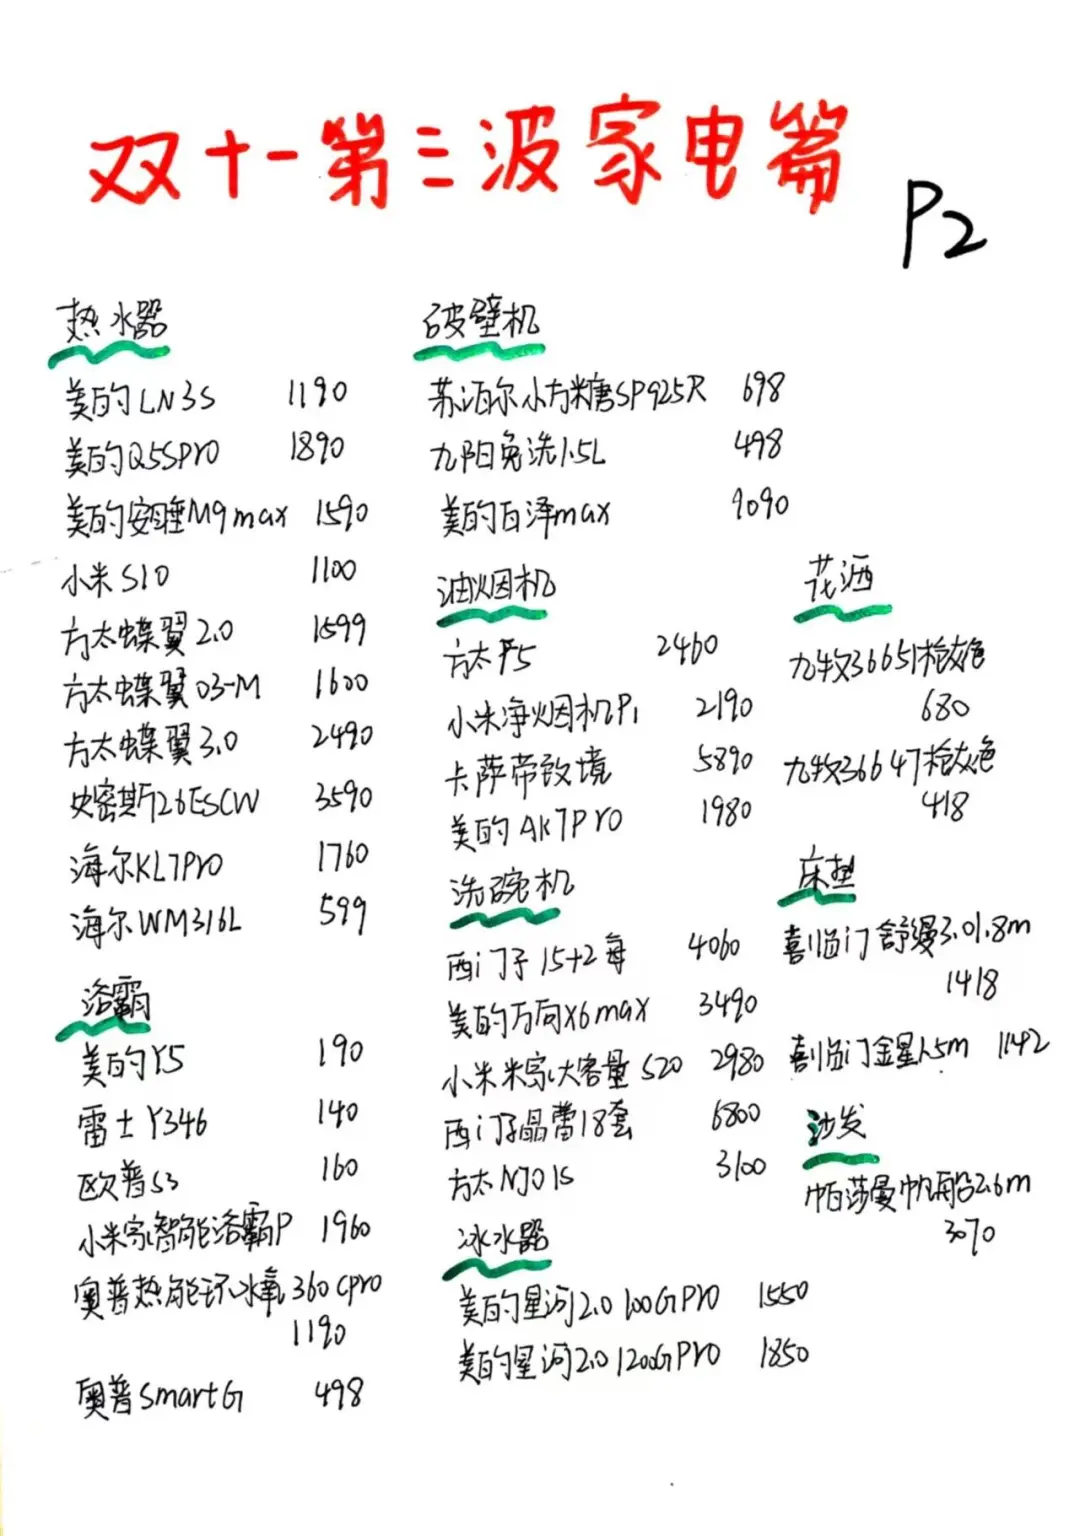 双十一第三波家电篇
P2
热水器
美的LN3S 1190
美的Q5SPro 1890
美的安睡M9max 1590
小米S10 1100
方太蝶翼2.0 1599
方太蝶翼03-M 1600
方太蝶翼3.0 2490
史密斯26ESCW 3590
海尔KL7Pro 1760
海尔WM316L 599
浴霸
美的Y5 190
雷士Y346 140
欧普S3 160
小米家智能浴霸P 1960
奥普热能环冰氧360cpro
1190
奥普SmartG 498
破壁机
苏泊尔小方糖SP925R 698
九阳免洗1.5L 498
美的白泽max 1090
油烟机
方太F5 2460
小米净烟机P1 2190
卡萨帝致境 5890
美的AK7Pro 1980
洗碗机
西门子15+2每 4060
美的万向X6max 3490
小米米家大容量S20 2980
西门子晶蕾18套 6800
方太NJ01S 3100
冰水器
美的星河2.0 100GPro 1550
美的星河2.0 1200GPro 1850
花洒
九牧36651枪灰色
680
九牧36647枪灰色
418
床垫
喜临门舒缦3.0 1.8m
1418
喜临门金星1.5m 1142
沙发
帕莎曼帆船2.6m
3070